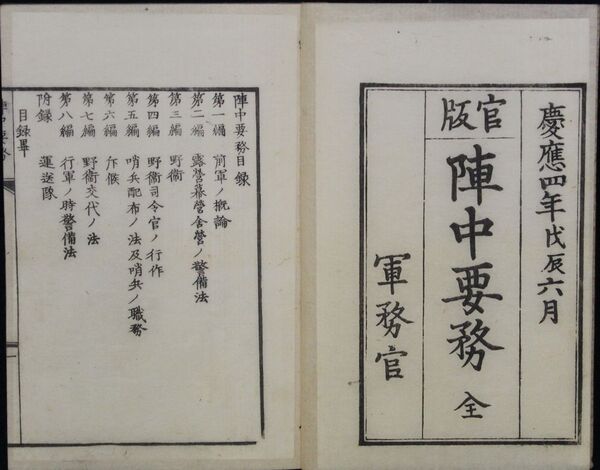 慶應四年戊辰六月
官版
陣中要務 全
軍務官
陣中要務目録
第一編 前軍ノ概論
第二編 露營幕營舎營ノ警備法
第三編 野衞
第四編 野衞司令官ノ行作
第五編 哨兵配布ノ法及哨兵ノ職務
第六編 斥候
第七編 野衞交代ノ法
第八編 行軍ノ時警備法
附録 運送隊
目録畢